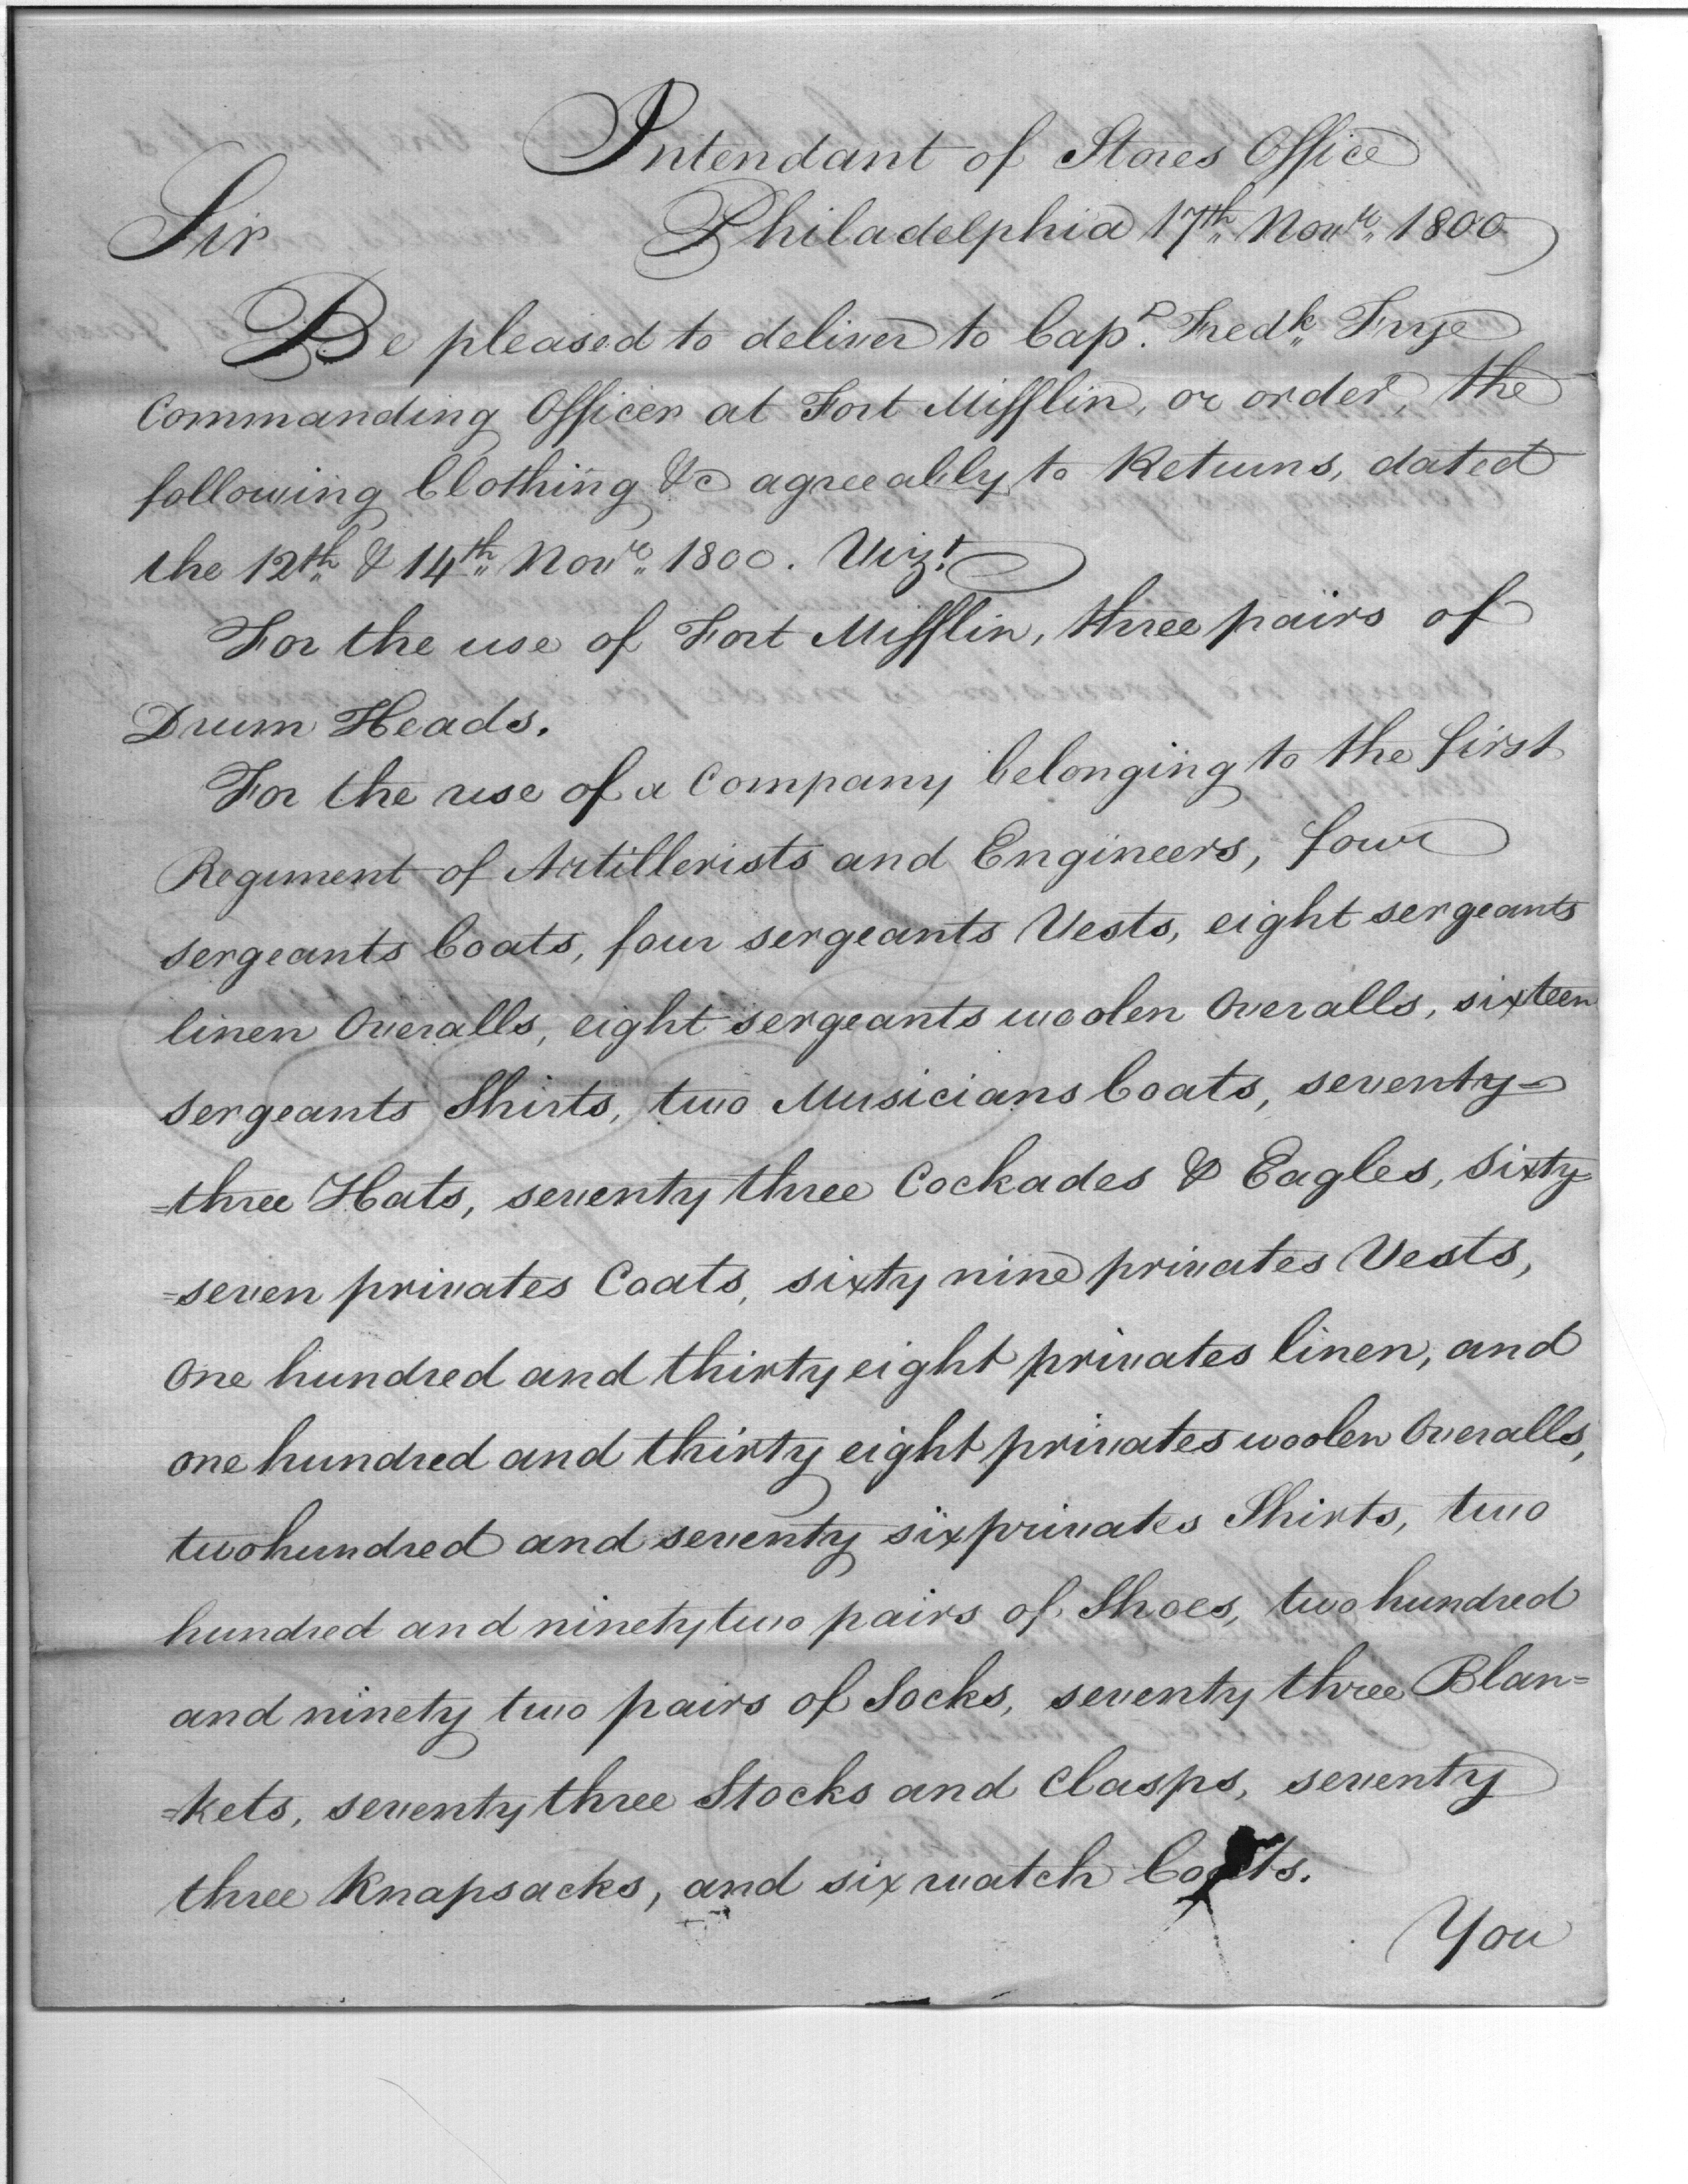 Intendant of Stores Office
Sir Philadelphia 17th Novr 1800
Be pleased to deliver to Capt. Fredk Frye
Commanding Officer at Fort Mifflin, or order, the
following Clothing &c agreeably to Returns, dated
the 12th & 14th Novr 1800. Vizt
For the use of Fort Mifflin, three pairs of
Drum Heads.
For the use of a Company belonging to the first
Regiment of Artillerists and Engineers, four
sergeants Coats, four sergeants Vests, eight sergeants
linen Overalls, eight sergeants woolen Overalls, sixteen
sergeants Shirts, two Musicians Coats, seventy=
=three Hats, seventy three Cockades & Eagles, sixty=
=seven privates Coats, sixty nine privates Vests,
One hundred and thirty eight privates linen, and
one hundred and thirty eight privates woolen Overalls,
two hundred and seventy six privates Shirts, two
hundred and ninety two pairs of Shoes, two hundred
and ninety two pairs of Socks, seventy three Blan=
=kets, seventy three Stocks and Clasps, seventy
three Knapsacks, and six watch Coats.
You